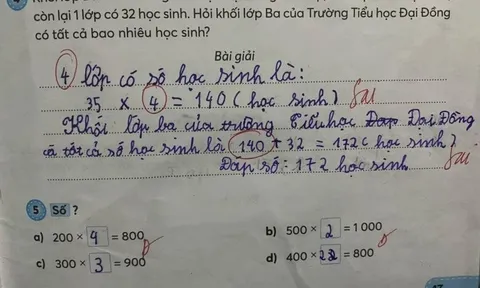 còn lại 1 lớp có 32 học sinh. Hỏi khối lớp Ba của Trường Tiểu học Đại Đồng
có tất cả bao nhiêu học sinh?
Bài giải
4 lớp có số học sinh là:
35 × 4 = 140 (học sinh) Sai
Khối lớp ba của trường Tiểu học Đạp Đại Đồng
có tất cả số học sinh là 140 + 32 = 172 (học sinh)
Đáp số: 172 học sinh Sai
5 Số ?
a) 200 × 4 = 800
b) 500 × 2 = 1 000
c) 300 × 3 = 900
d) 400 × 2 = 800